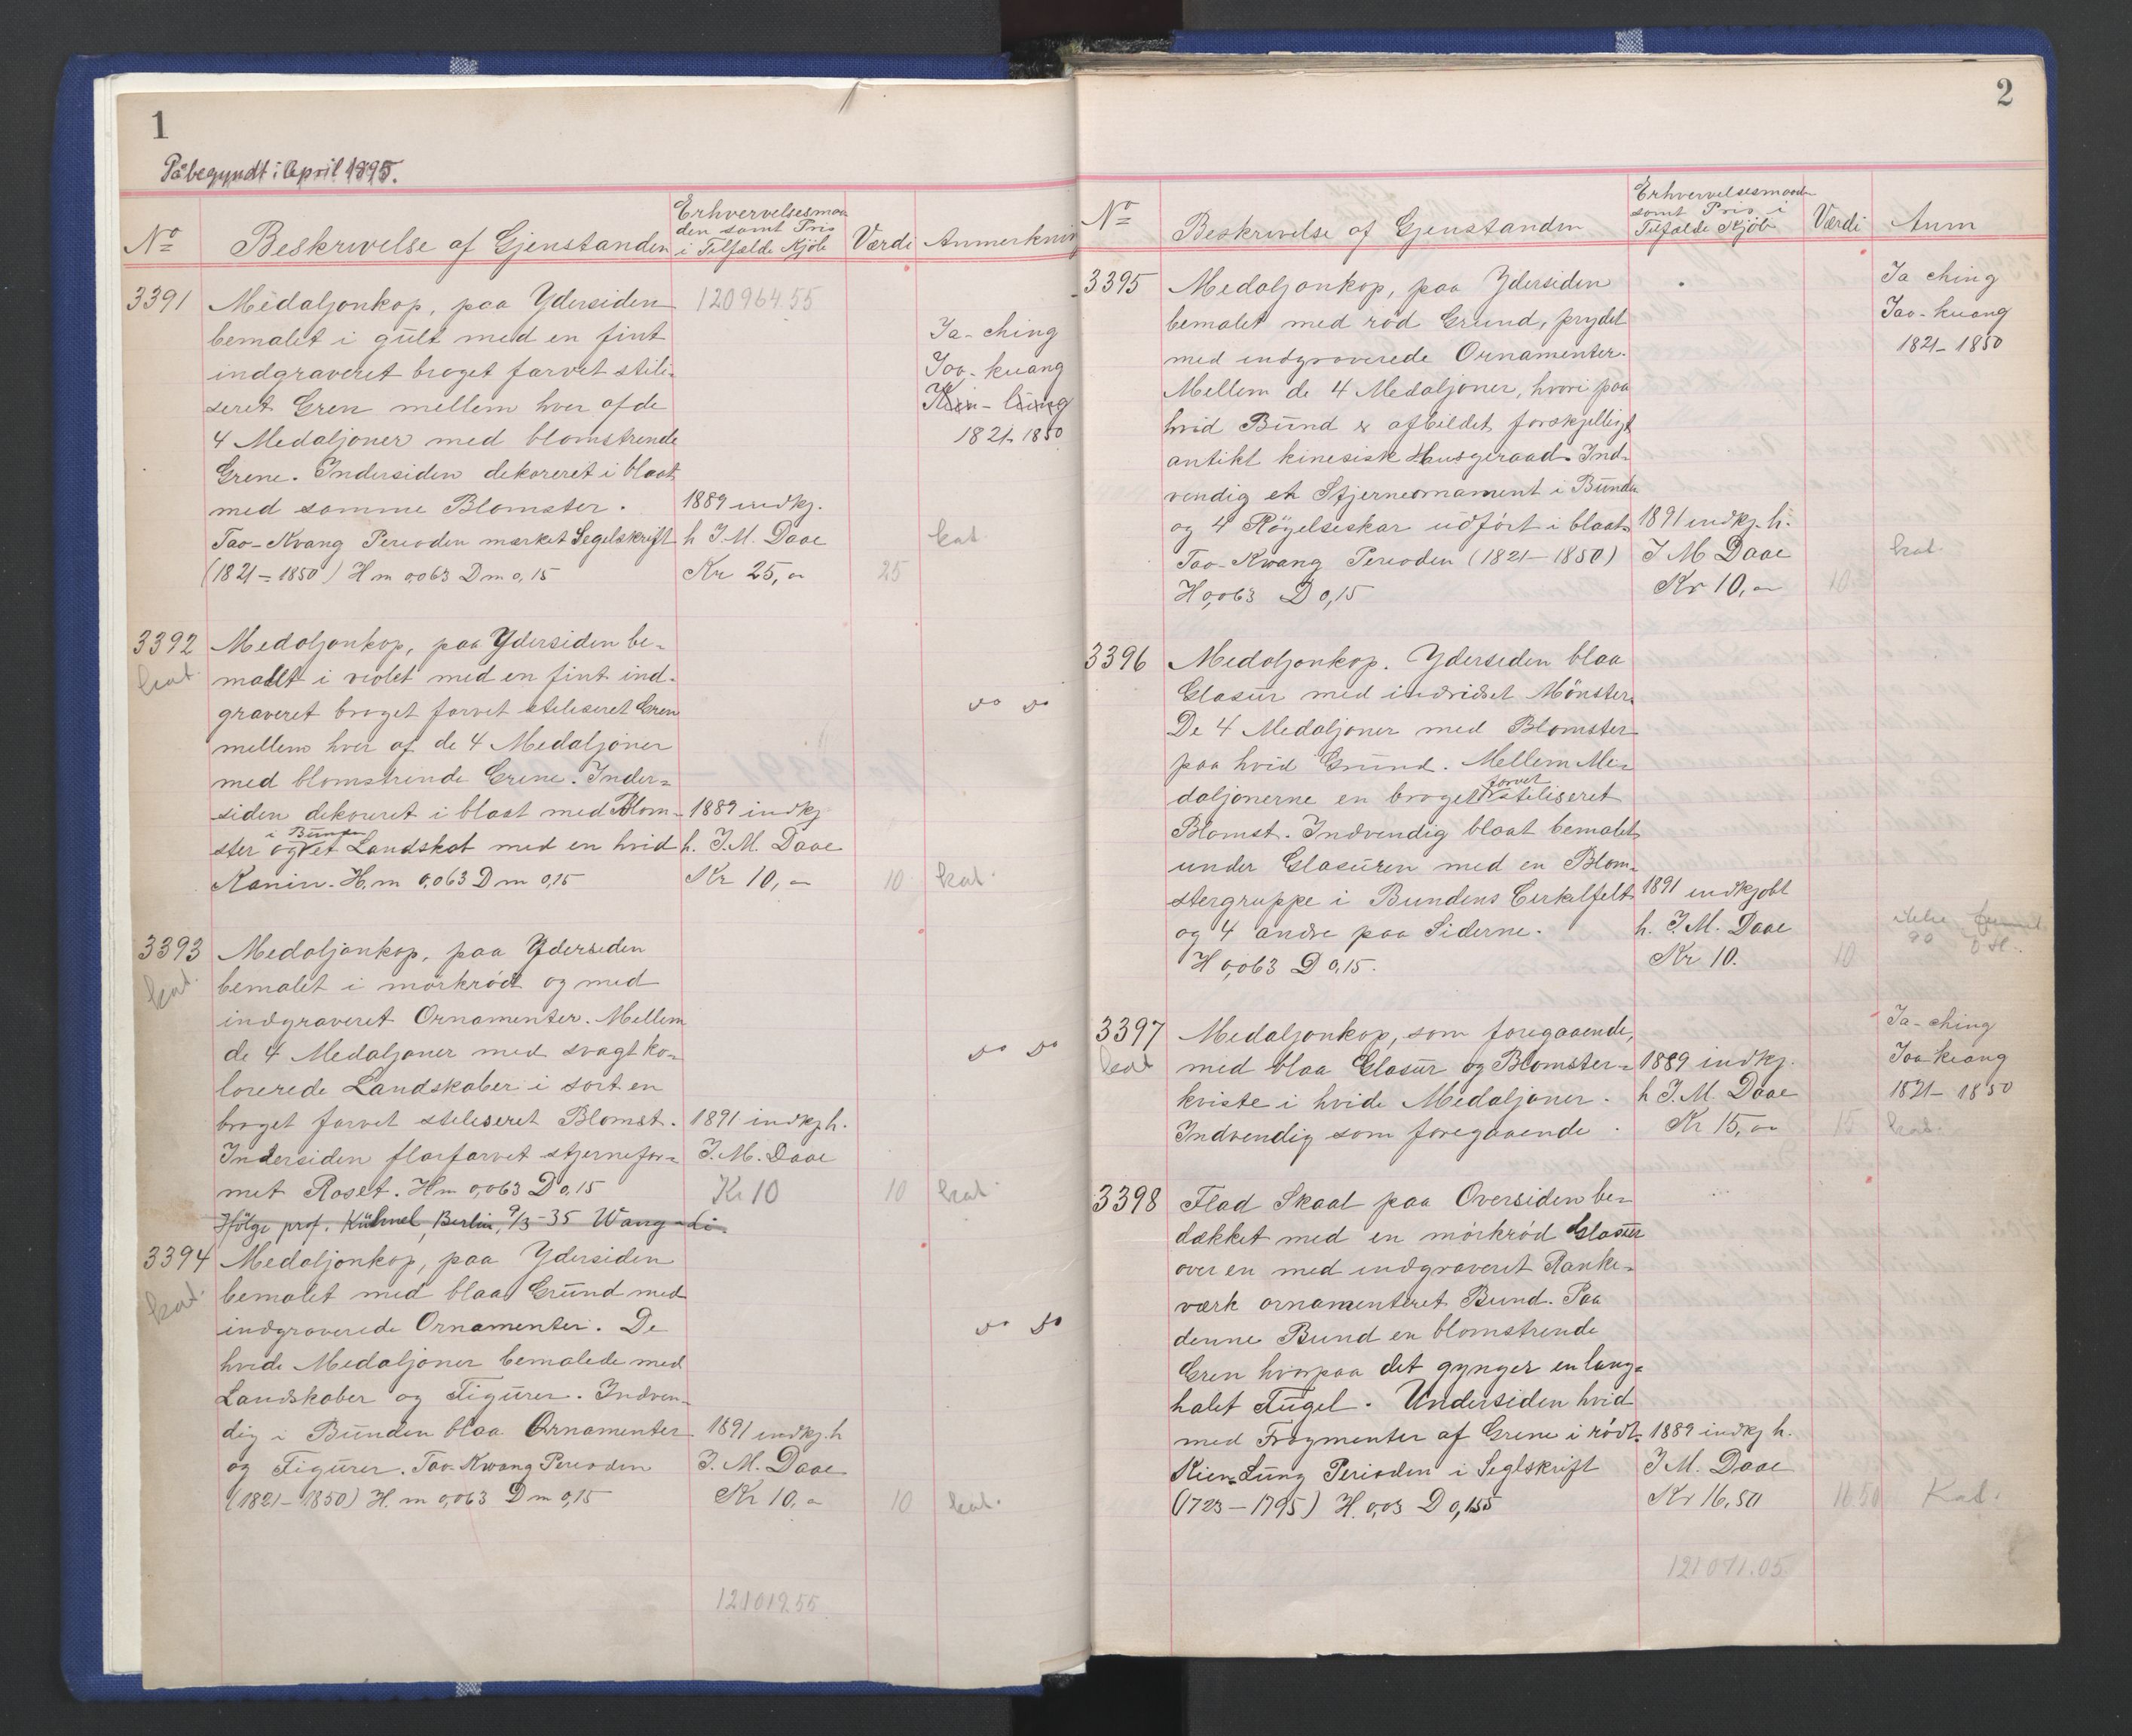 1
Påbegyndt i April 1895.
No
Beskrivelse af Gjenstanden
Erhvervelsesmaa
den samt Pris
i Tilfælde Kjöb
Værdi
Anmerknin
3391
Medaljonkop, paa Ydersiden
120964.55
bemalet i gult med en fint
Ta-ching
indgraveret broget farvet stili-
Tao-kuang
seret Gren mellem hver af de
Kien-lung
4 Medaljoner med blomstrende
1821-1850
Grene. Indersiden dekoreret i blaat
med samme Blomster.
1889 indkj.
Tao-Kvang Perioden mærket Segelskrift
h J. M. Daae
kat.
(1821-1850) H m 0,063 D m 0,15
Kr 25,
25
3392
Medaljonkop, paa Ydersiden be-
kat.
malet i violet med en fint ind-
graveret broget farvet steliseret Gren
do do
mellem hver af de 4 Medaljoner
med blomstrende Grene. Inder-
siden dekoreret i blaat med Blom-
1889 indkj
i Bunden
ster og et Landskab med en hvid
h. J. M. Daae
Kanin. H. m 0,063 D m 0,15
Kr 10,
10
kat.
3393
Medaljonkop, paa Ydersiden
kat.
bemalet i mörkrödt og med
indgraveret Ornamenter. Mellem
de 4 Medaljoner med svagt ko-
do do
lorerede Landskaber i sort en
broget farvet steliseret Blomst.
1891 indkj h.
Indersiden flerfarvet stjernefor-
J. M. Daae
met Roset. H m 0,063 D 0,15
Kr 10
10
kat.
Ifölge prof. Kühnel, Berlin, 9/3-35 Wang-Li
3394
Medaljonkop, paa Ydersiden
kat.
bemalet med blaa Grund med
indgraverede Ornamenter. De
do do
hvide Medaljoner bemalede med
Landskaber og Figurer. Indven-
dig i Bunden blaa Ornamenter
1891 indkj. h
og Figurer. Tao-Kwang Perioden
J. M. Daae
(1821-1850) H. m 0,063 D m 0,15
Kr 10,
10
kat.
121019.55
2
No
Beskrivelse af Gjenstanden
Erhvervelsesmaaden
samt Pris i
Tilfælde Kjöb
Værdi
Anm
3395
Medaljonkop, paa Ydersiden
Ta ching
bemalet med röd Grund, prydet
Tao-kuang
med indgraverede Ornamenter.
1821-1850
Mellem de 4 Medaljoner, hvori paa
hvid Bund er afbildet forskjelligt
antikt kinesisk Husgeraad. Ind-
vendig et Stjerneornament i Bunden
og 4 Rögelseskar udfört i blaat.
1891 indkj. h.
Tao-Kwang Perioden (1821-1850)
J M Daae
kat.
H 0,063 D 0,15
Kr 10,
10
3396
Medaljonkop. Ydersiden blaa
Glasur med indridset Mönster.
De 4 Medaljoner med Blomster
paa hvid Grund. Mellem Me-
farvet
daljonerne en broget steliseret
Blomst. Indvendig blaat bemalet
under Glasuren med en Blom-
stergruppe i Bundens Cirkelfelt
1891 indkjobt
og 4 andre paa Siderne.
h. J. M. Daae
H 0,063 D 0,15.
Kr 10.
10
3397
Medaljonkop, som foregaaende,
Ta-ching
kat
med blaa Glasur og Blomster-
1889 indkj.
Tao keang
kviste i hvide Medaljoner.
h J. M. Daae
1821-1850
Indvendig som foregaaende.
Kr 15,
15
kat.
3398
Flad Skaal paa Oversiden be-
dækket med en mörkröd Glasur
over en med indgraveret Ranke-
værk ornamenteret Bund. Paa
denne Bund en blomstrende
Gren hvorpaa det gynger en lang-
halet Fugel. Undersiden hvid
med Fragmenter af Grene i rödt.
1889 indkj h.
Kien-Lung Perioden i Seglskrift
J M. Daae
(1723-1795) H. 0,03 D 0,155
Kr 16,50
16.50
Kat.
121071.05